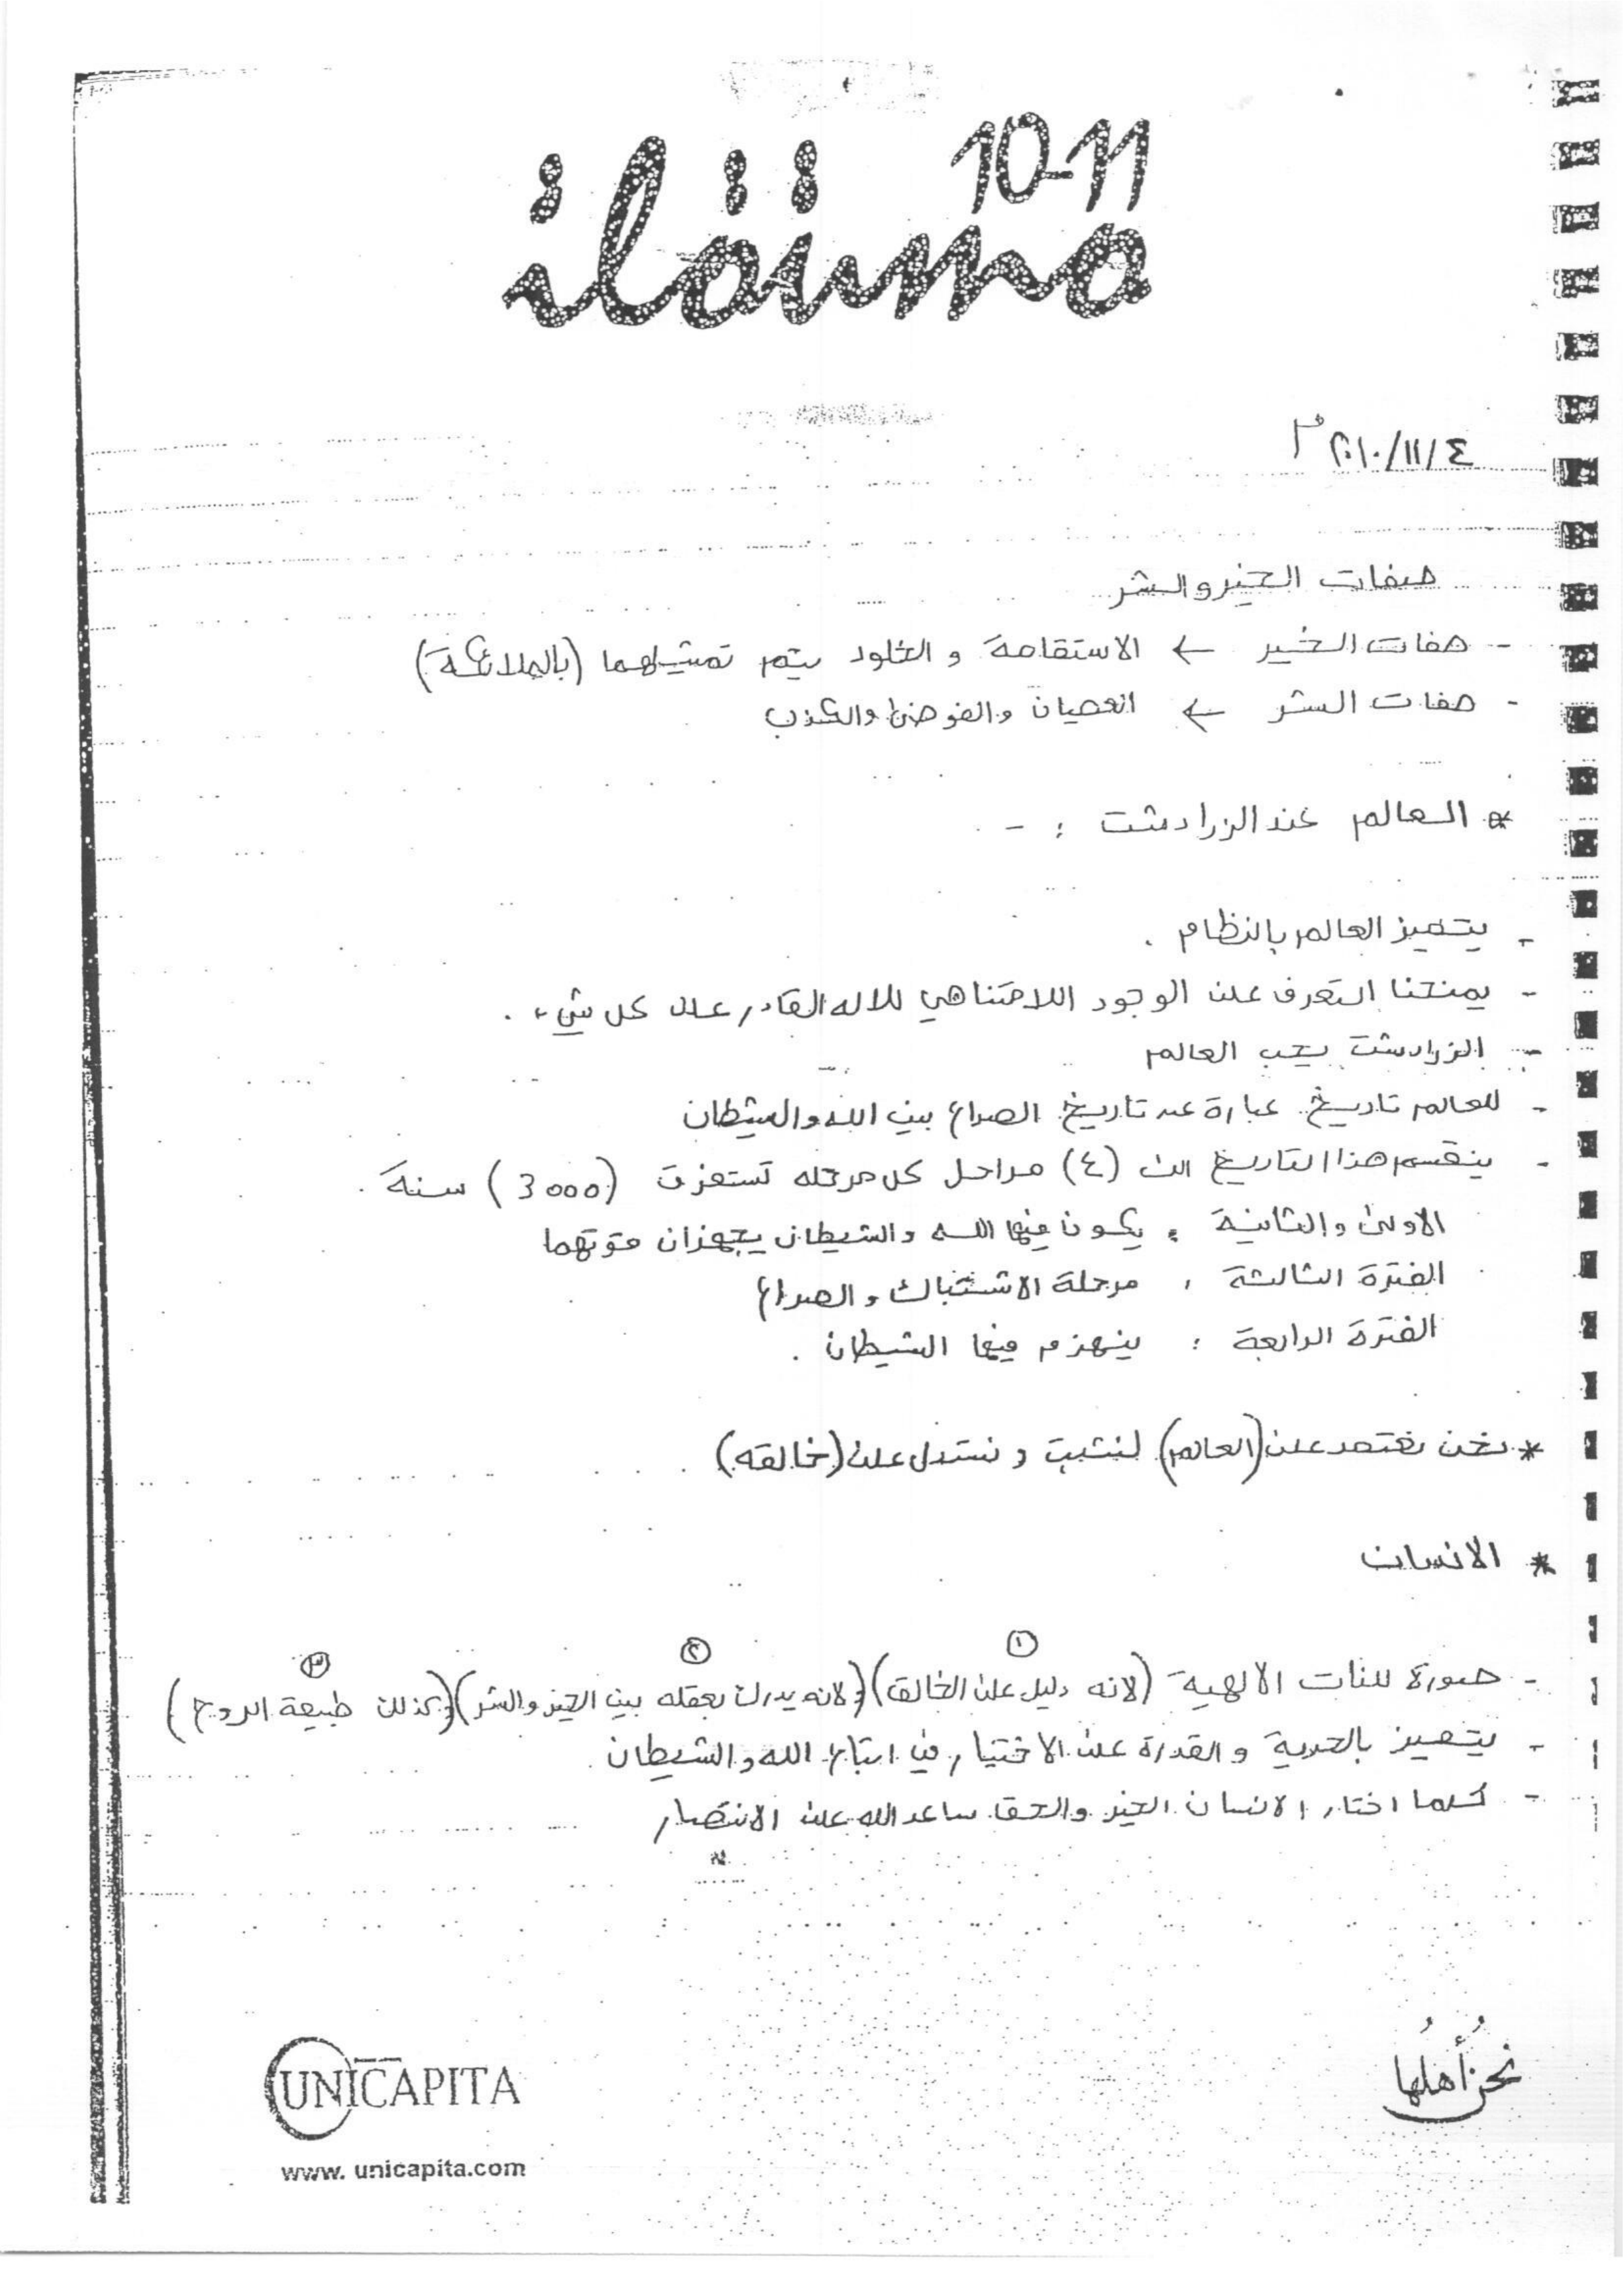 10-11
٢٠١٠/١١/٤ م
صفات الخير والشر
- صفات الخير ← الاستقامة و الخلود يتم تمثيلهما (بالملائكة)
- صفات الشر ← العصيان والفوضى والكذب
* العالم عند الزرادشت : -
- يتميز العالم بالنظام .
- يمنحنا التعرف على الوجود اللامتناهي للاله القادر على كل شيء .
- الزرادشت يحب العالم
- للعالم تاريخ عبارة عن تاريخ الصراع بين الله والشيطان
- ينقسم هذا التاريخ الى (٤) مراحل كل مرحله تستغرق (3000) سنة .
الاولى والثانية : يكون فيها الله والشيطان يجهزان قوتهما
الفترة الثالثة : مرحلة الاشتباك والصراع
الفترة الرابعة : ينهزم فيها الشيطان .
* نحن نعتمد على (العالم) لنثبت و نستدل على (خالقه)
* الانسان
- صورة للذات الالهية (لانه دليل على الخالق) ١ (ولانه يدرك بعقله بين الخير والشر) ٢ (كذلك طبيعة الروح) ٣
- يتميز بالحرية و القدرة على الاختيار في اتباع الله والشيطان
- كلما اختار الانسان الخير والحق ساعد الله على الانتصار
نحنُ أهلُها
UNICAPITA
www. unicapita.com